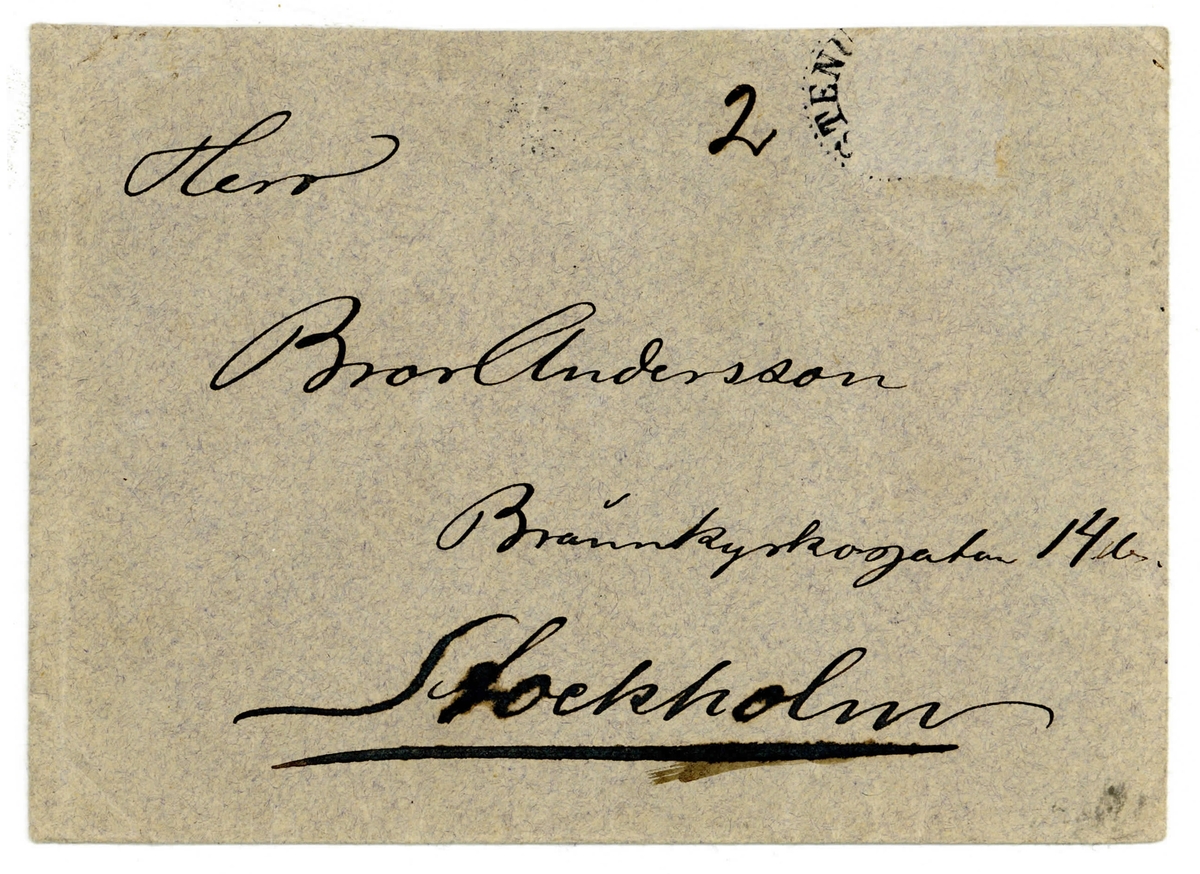 2
TEN
Herr
Bror Andersson
Brännkyrkogatan 14
Stockholm